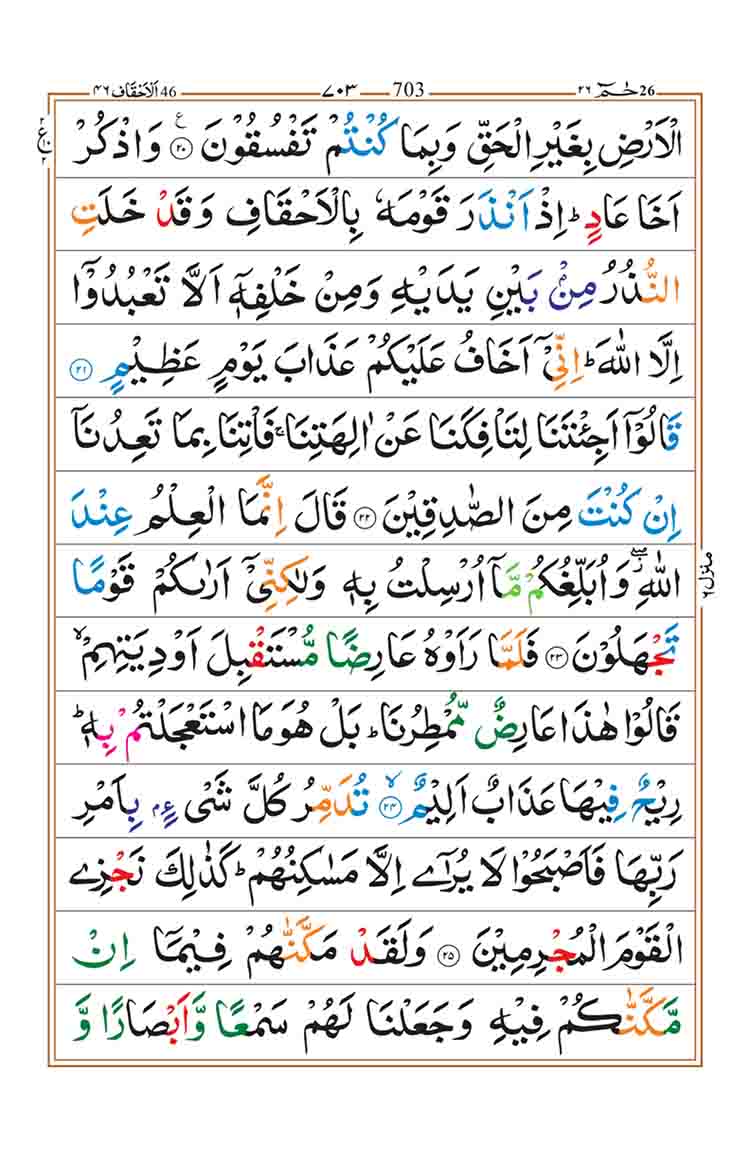 26 حٰمٓ ٢٦ 703 ٧٠٣ 46 اَلۡاَحۡقَاف ٤٦
الۡاَرۡضِ بِغَيۡرِ الۡحَقِّ وَبِمَا كُنۡتُمۡ تَفۡسُقُوۡنَ ﴿۲۰﴾ وَاذۡكُرۡ
اَخَا عَادٍؕ اِذۡ اَنۡذَرَ قَوۡمَهٗ بِالۡاَحۡقَافِ وَقَدۡ خَلَتِ
النُّذُرُ مِنۡۢ بَيۡنِ يَدَيۡهِ وَمِنۡ خَلۡفِهٖۤ اَلَّا تَعۡبُدُوۡۤا
اِلَّا اللّٰهَؕ اِنِّىۡۤ اَخَافُ عَلَيۡكُمۡ عَذَابَ يَوۡمٍ عَظِيۡمٍ ﴿۲۱﴾
قَالُوۡۤا اَجِئۡتَنَا لِتَاۡفِكَنَا عَنۡ اٰلِهَتِنَاۚ فَاۡتِنَا بِمَا تَعِدُنَاۤ
اِنۡ كُنۡتَ مِنَ الصّٰدِقِيۡنَ ﴿۲۲﴾ قَالَ اِنَّمَا الۡعِلۡمُ عِنۡدَ
اللّٰهِ ۖ وَاُبَلِّغُكُمۡ مَّاۤ اُرۡسِلۡتُ بِهٖ وَلٰكِنِّىۡۤ اَرٰٮكُمۡ قَوۡمًا
تَجۡهَلُوۡنَ ﴿۲۳﴾ فَلَمَّا رَاَوۡهُ عَارِضًا مُّسۡتَقۡبِلَ اَوۡدِيَتِهِمۡۙ
قَالُوۡا هٰذَا عَارِضٌ مُّمۡطِرُنَاؕ بَلۡ هُوَ مَا اسۡتَعۡجَلۡتُمۡ بِهٖؕ
رِيۡحٌ فِيۡهَا عَذَابٌ اَلِيۡمٌۙ ﴿۲۴﴾ تُدَمِّرُ كُلَّ شَىۡءٍۢ بِاَمۡرِ
رَبِّهَا فَاَصۡبَحُوۡا لَا يُرٰٓى اِلَّا مَسٰكِنُهُمۡؕ كَذٰلِكَ نَجۡزِى
الۡقَوۡمَ الۡمُجۡرِمِيۡنَ ﴿۲۵﴾ وَلَقَدۡ مَكَّنّٰهُمۡ فِيۡمَاۤ اِنۡ
مَّكَّنّٰكُمۡ فِيۡهِ وَجَعَلۡنَا لَهُمۡ سَمۡعًا وَّاَبۡصَارًا وَّ
ع ٢ ١٠ ٢
منزل ٦